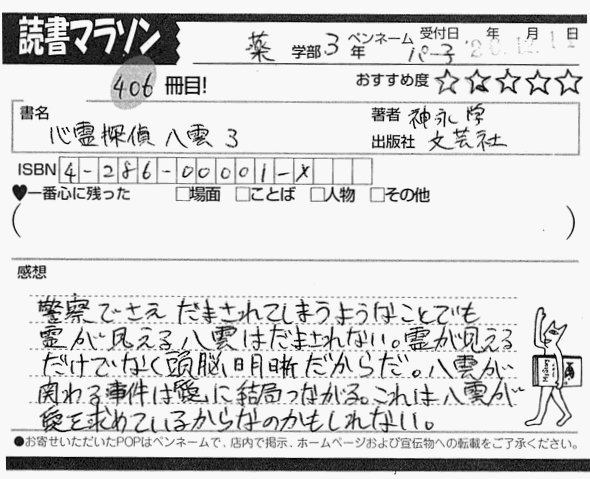 読書マラソン
薬 学部 3 年 ペンネーム パー子 受付日 年 月 日
406 冊目! おすすめ度 ☆☆☆☆☆
書名 心霊探偵 八雲 3
著者 神永学
出版社 文芸社
ISBN 4-286-00001-X
♥一番心に残った □場面 □ことば □人物 □その他
( )
感想
警察でさえ だまされてしまうようなことでも
霊が見える 八雲はだまされない。霊が見える
だけでなく頭脳明晰だからだ。八雲が
関わる事件は愛に結局つながる。これは八雲が
愛を求めているからなのかもしれない。
●お寄せいただいたPOPはペンネームで、店内で掲示、ホームページおよび宣伝物への転載をご了承ください。